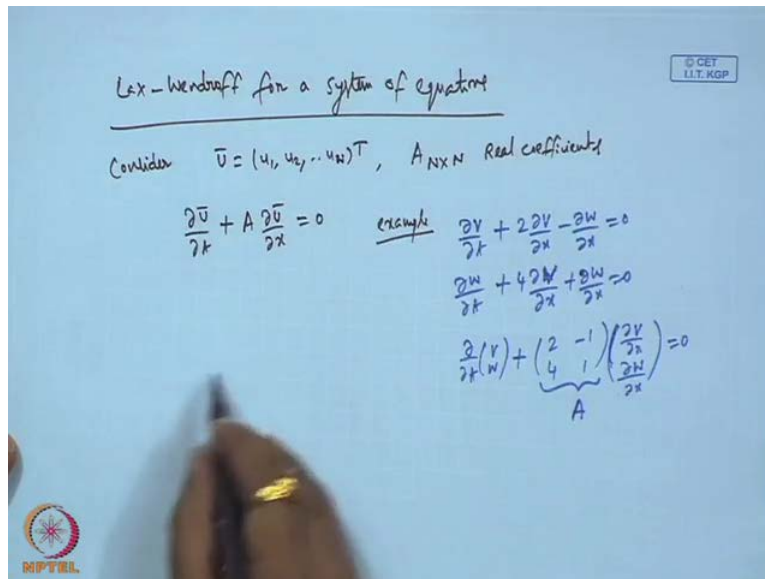 Lax-Wendroff for a system of equations
© CET
I.I.T. KGP
Consider Ū = (u₁, u₂, .. u_N)ᵀ, A_{N×N} Real coefficients
∂Ū/∂t + A ∂Ū/∂x = 0
example ∂V/∂t + 2 ∂V/∂x - ∂W/∂x = 0
∂W/∂t + 4 ∂V/∂x + ∂W/∂x = 0
∂/∂t (V W) + (2 -1 4 1) (∂V/∂x ∂W/∂x) = 0
A
NPTEL